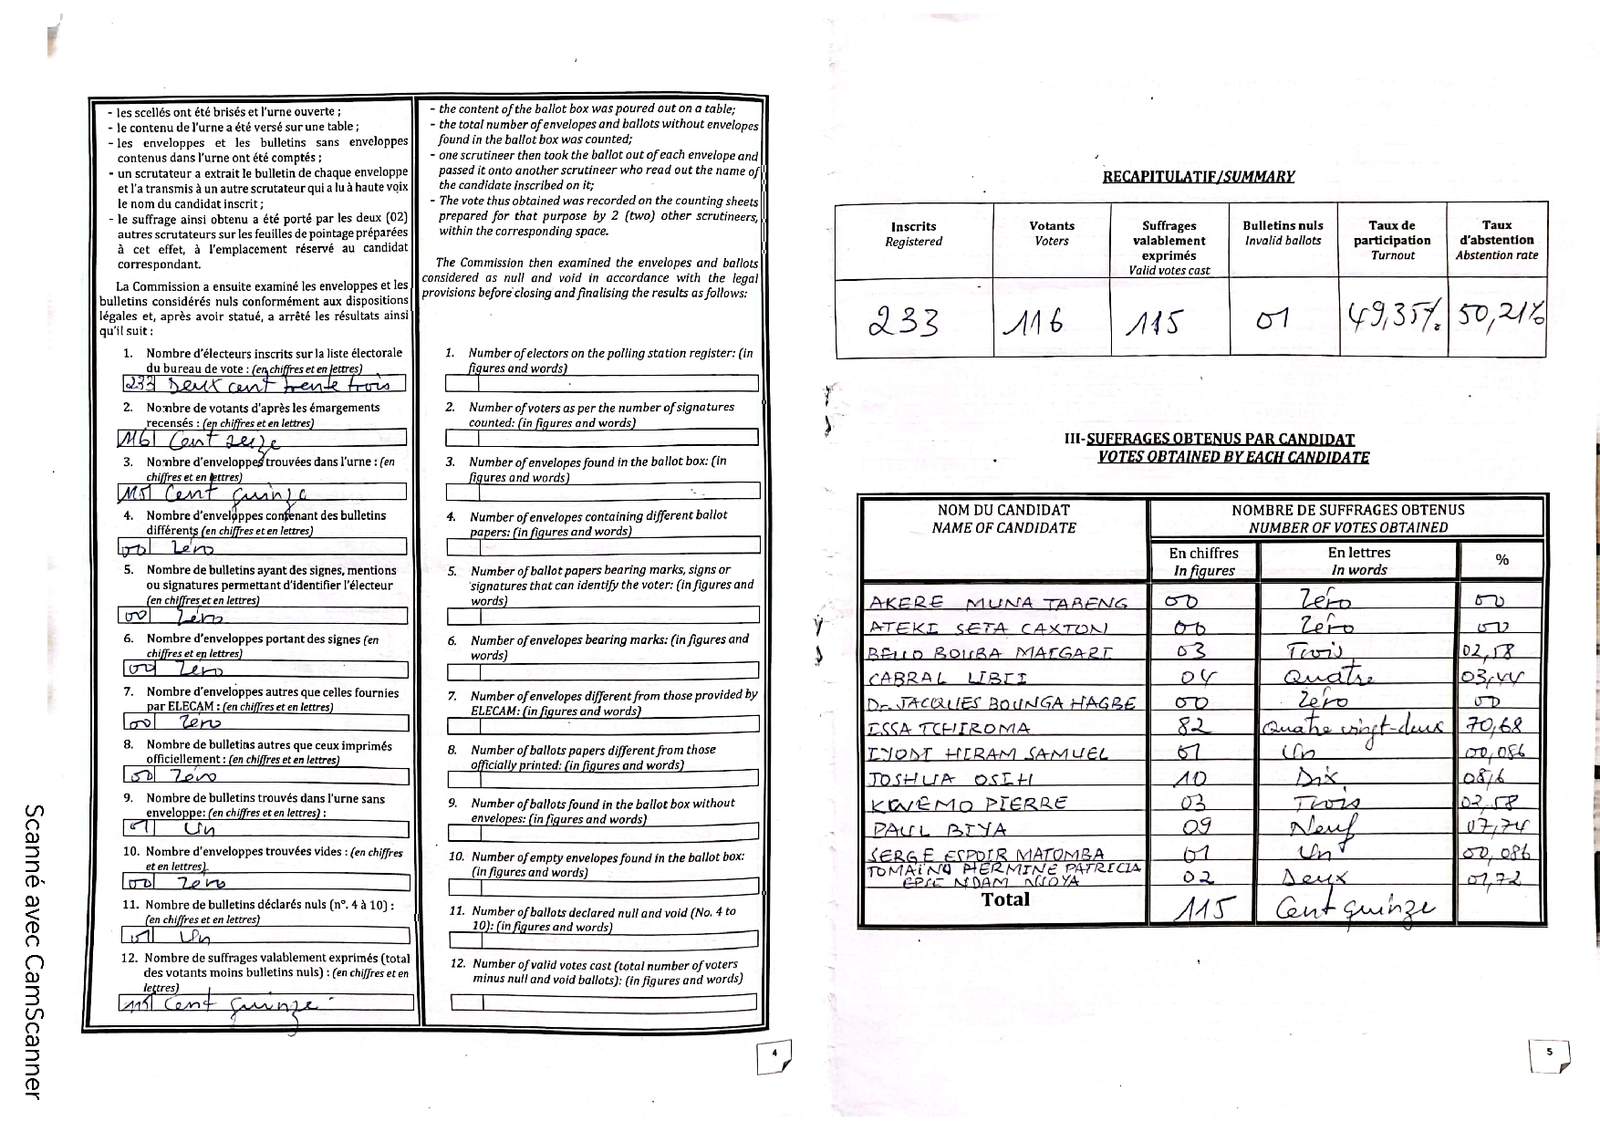 - les scellés ont été brisés et l'urne ouverte ;
- le contenu de l'urne a été versé sur une table ;
- les enveloppes et les bulletins sans enveloppes
contenus dans l'urne ont été comptés ;
- un scrutateur a extrait le bulletin de chaque enveloppe
et l'a transmis à un autre scrutateur qui a lu à haute voix
le nom du candidat inscrit ;
- le suffrage ainsi obtenu a été porté par les deux (02)
autres scrutateurs sur les feuilles de pointage préparées
à cet effet, à l'emplacement réservé au candidat
correspondant.
La Commission a ensuite examiné les enveloppes et les
bulletins considérés nuls conformément aux dispositions
légales et, après avoir statué, a arrêté les résultats ainsi
qu'il suit :
1. Nombre d'électeurs inscrits sur la liste électorale
du bureau de vote : (en chiffres et en lettres)
233 Deux cent trente trois
2. Nombre de votants d'après les émargements
recensés : (en chiffres et en lettres)
116 Cent seize
3. Nombre d'enveloppes trouvées dans l'urne : (en
chiffres et en lettres)
115 Cent quinze
4. Nombre d'enveloppes contenant des bulletins
différents (en chiffres et en lettres)
00 Zéro
5. Nombre de bulletins ayant des signes, mentions
ou signatures permettant d'identifier l'électeur
(en chiffres et en lettres)
00 Zéro
6. Nombre d'enveloppes portant des signes (en
chiffres et en lettres)
00 Zéro
7. Nombre d'enveloppes autres que celles fournies
par ELECAM : (en chiffres et en lettres)
00 Zéro
8. Nombre de bulletins autres que ceux imprimés
officiellement : (en chiffres et en lettres)
00 Zéro
9. Nombre de bulletins trouvés dans l'urne sans
enveloppe: (en chiffres et en lettres) :
01 Un
10. Nombre d'enveloppes trouvées vides : (en chiffres
et en lettres)
00 Zéro
11. Nombre de bulletins déclarés nuls (n°. 4 à 10) :
(en chiffres et en lettres)
01 Un
12. Nombre de suffrages valablement exprimés (total
des votants moins bulletins nuls) : (en chiffres et en
lettres)
115 Cent quinze
- the content of the ballot box was poured out on a table;
- the total number of envelopes and ballots without envelopes
found in the ballot box was counted;
- one scrutineer then took the ballot out of each envelope and
passed it onto another scrutineer who read out the name of
the candidate inscribed on it;
- The vote thus obtained was recorded on the counting sheets
prepared for that purpose by 2 (two) other scrutineers,
within the corresponding space.
The Commission then examined the envelopes and ballots
considered as null and void in accordance with the legal
provisions before closing and finalising the results as follows:
1. Number of electors on the polling station register: (in
figures and words)
2. Number of voters as per the number of signatures
counted: (in figures and words)
3. Number of envelopes found in the ballot box: (in
figures and words)
4. Number of envelopes containing different ballot
papers: (in figures and words)
5. Number of ballot papers bearing marks, signs or
signatures that can identify the voter: (in figures and
words)
6. Number of envelopes bearing marks: (in figures and
words)
7. Number of envelopes different from those provided by
ELECAM: (in figures and words)
8. Number of ballots papers different from those
officially printed: (in figures and words)
9. Number of ballots found in the ballot box without
envelopes: (in figures and words)
10. Number of empty envelopes found in the ballot box:
(in figures and words)
11. Number of ballots declared null and void (No. 4 to
10): (in figures and words)
12. Number of valid votes cast (total number of voters
minus null and void ballots): (in figures and words)
4
Scanné avec CamScanner
RECAPITULATIF/SUMMARY
Inscrits Registered
Votants Voters
Suffrages valablement exprimés Valid votes cast
Bulletins nuls Invalid ballots
Taux de participation Turnout
Taux d'abstention Abstention rate
233 116 115 01 49,35% 50,21%
III-SUFFRAGES OBTENUS PAR CANDIDAT
VOTES OBTAINED BY EACH CANDIDATE
NOM DU CANDIDAT NOMBRE DE SUFFRAGES OBTENUS
NAME OF CANDIDATE NUMBER OF VOTES OBTAINED
En chiffres En lettres %
In figures In words
AKERE MUNA TABENG 00 Zéro 00
ATEKI SETA CAXTON 00 Zéro 00
BELLO BOUBA MAIGARI 03 Trois 02,58
CABRAL LIBII 04 Quatre 03,44
Dr. JACQUES BOUNGA HAGBE 00 Zéro 00
ISSA TCHIROMA 82 Quatre vingt-deux 70,68
IYODI HIRAM SAMUEL 01 Un 00,086
JOSHUA OSIH 10 Dix 08,6
KWEMO PIERRE 03 Trois 02,58
PAUL BIYA 09 Neuf 07,74
SERGE ESPOIR MATOMBA 01 Un 00,086
TOMAINO HERMINE PATRICIA
EPSE NDAM NJOYA 02 Deux 01,72
Total 115 Cent quinze
5